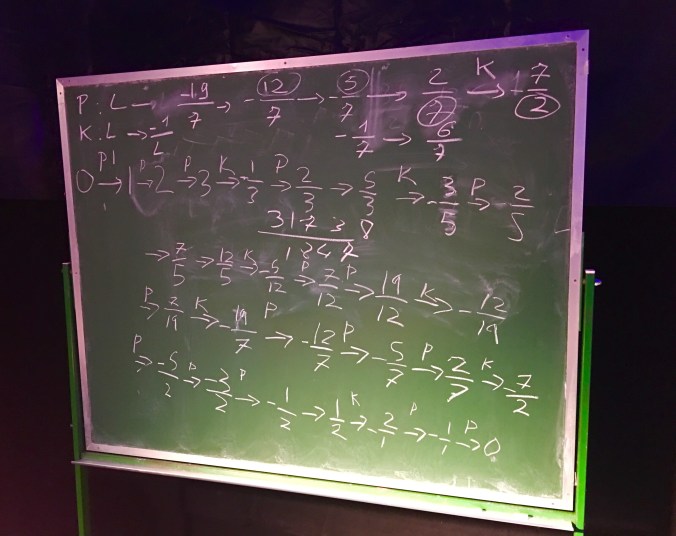 P: L → -19/7 → -12/7 → -5/7 → 2/7 K→ -7/2
K: L → -1/L -1/7 → 6/7
0 P1→ 1 P→ 2 P→ 3 K→ -1/3 P→ 2/3 → 5/3 K→ -3/5 P→ 2/5
31738
→ 7/5 → 12/5 K→ -5/12 P→ 7/12 P→ 19/12 K→ -12/19
P→ 7/19 K→ -19/7 P→ -12/7 P→ -5/7 P→ 2/7 K→ -7/2
P→ -5/2 P→ -3/2 P→ -1/2 → 1/2 K→ -2/1 P→ -1/1 P→ 0